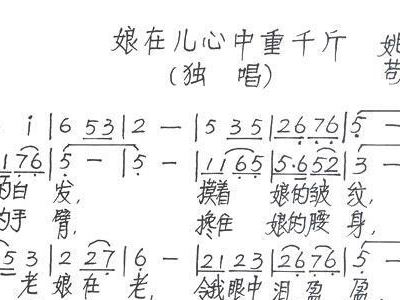 娘在儿心中重千斤 姚
(独 唱)
i | 6 53 | 2 — | 5 35 | 2676 | 5 —
176 | 5 — | 5 — | 1165 | 5·652 | 3 —
的白 发, 摸着 娘的皱 纹,
的手 臂, 搀住 娘的腰 身,
5 3 | 2 27 | 6 — | 2123 | 2676 | 5 —
老 娘在 老, 令我眼中 泪 盈 盈,